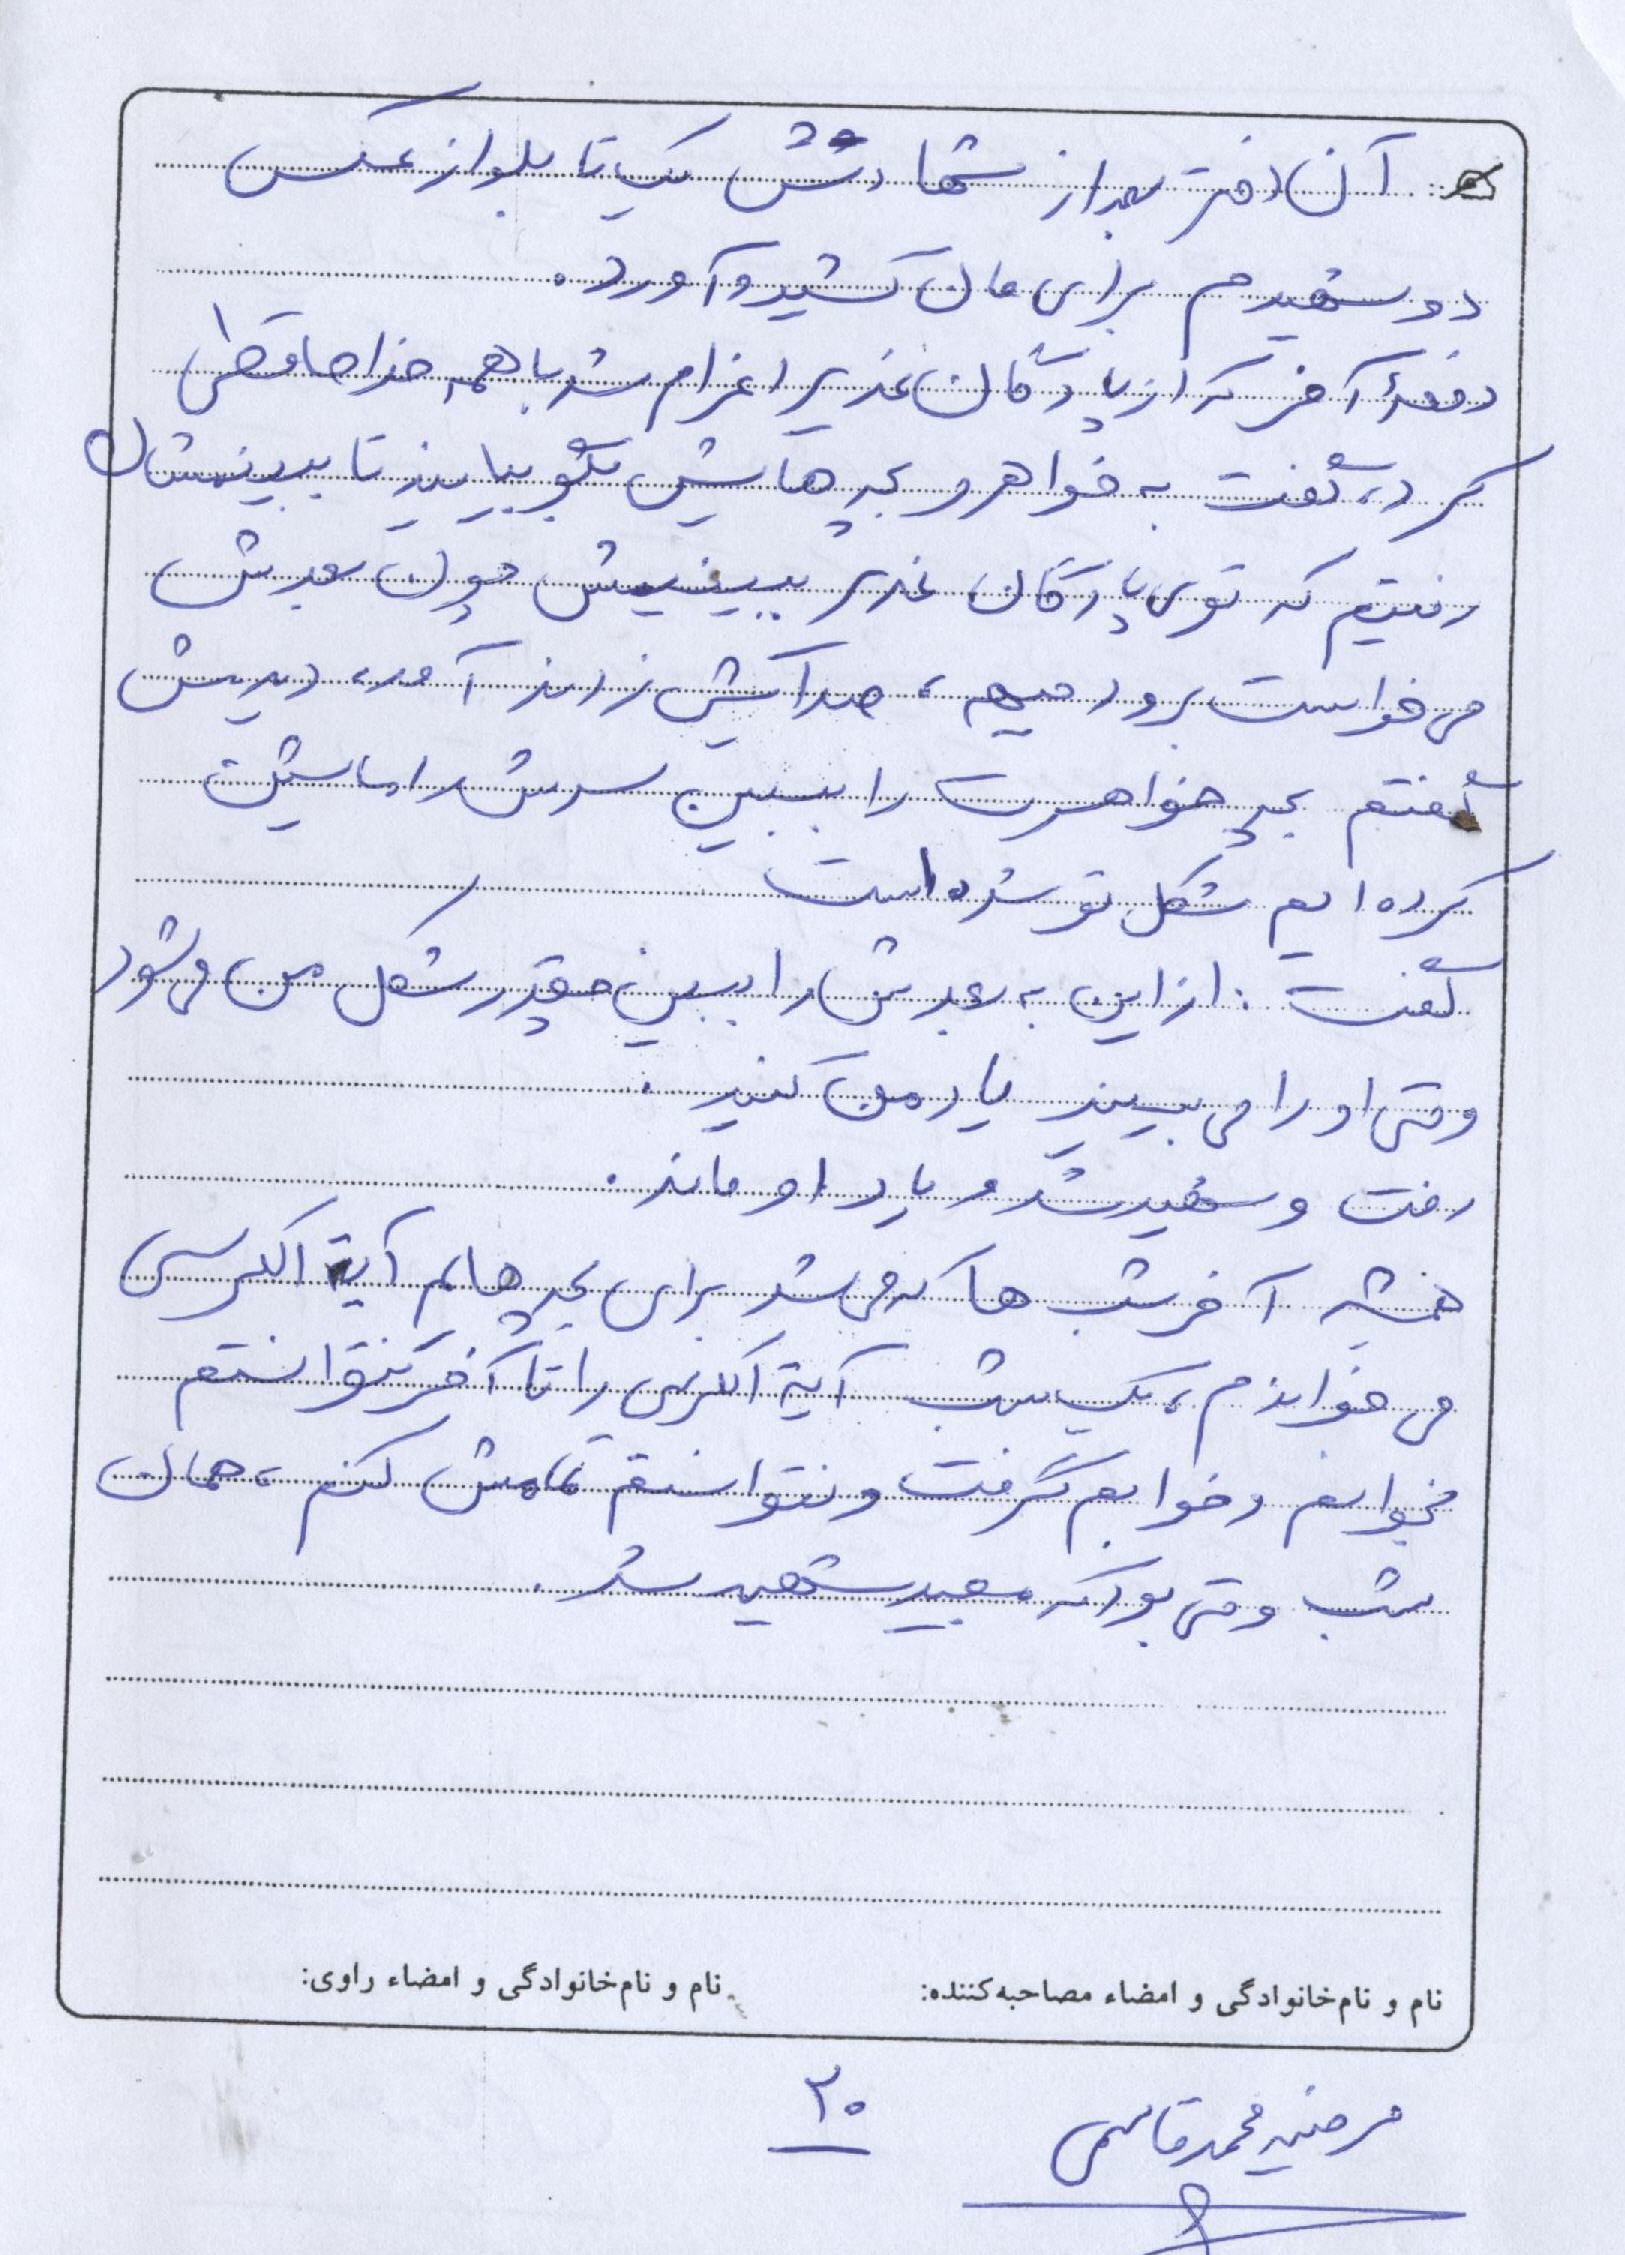 آن دختر بعد از شهادتش یک تابلو از عکس
دو شهیدم برای مان کشید و آورد.
دفعهٔ آخر که از پادگان غدیر اعزام شد با همه خداحافظی
کرد، گفت به خواهر و بچه هایش بگو بیایند تا ببینمشان
رفتیم که توی پادگان غدیر ببینیمش چون بعدش
می خواست برود جبهه، صدایش زدند آمد، دیدیش
گفتم بچه خواهرت را ببین سرش را ماشین
کرده ایم شکل تو شده است
گفت: از این به بعدش را ببین چقدر شکل من می شود
وقتی او را می بینید یاد من کنید.
رفت و شهید شد و یاد او ماند.
همیشه آخر شب ها که می شد برای بچه هایم آیة الکرسی
می خواندم، یک شب آیة الکرسی را تا آخر نتوانستم
بخوانم و خوابم گرفت و نتوانستم تمامش کنم، همان
شب وقتی بود که مجید شهید شد.
نام و نام‌خانوادگی و امضاء مصاحبه‌کننده: نام و نام‌خانوادگی و امضاء راوی:
مرضیه محمدقاسمی
۲۰